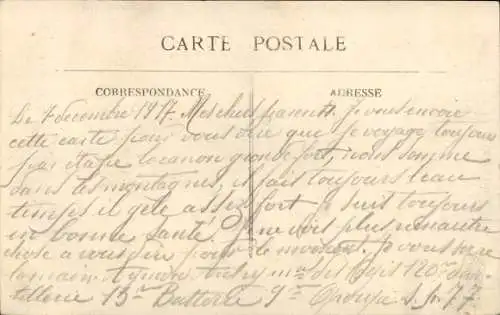 CARTE POSTALE
CORRESPONDANCE
ADRESSE
Le 7 decembre 1917. Mes chers parents. Je vous envoie
cette carte pour vous dire que je voyage toujours
par Italie le canon gronde fort, nous somme
dans les montagnes, il fait toujours beau
temps il gèle assez fort je suit toujours
en bonne santé. Je ne vois plus
chose a vous pour le moment. Je vous serre
la main. 120e d'ar
tillerie 13e Batterie 9e Groupe S. P. 77